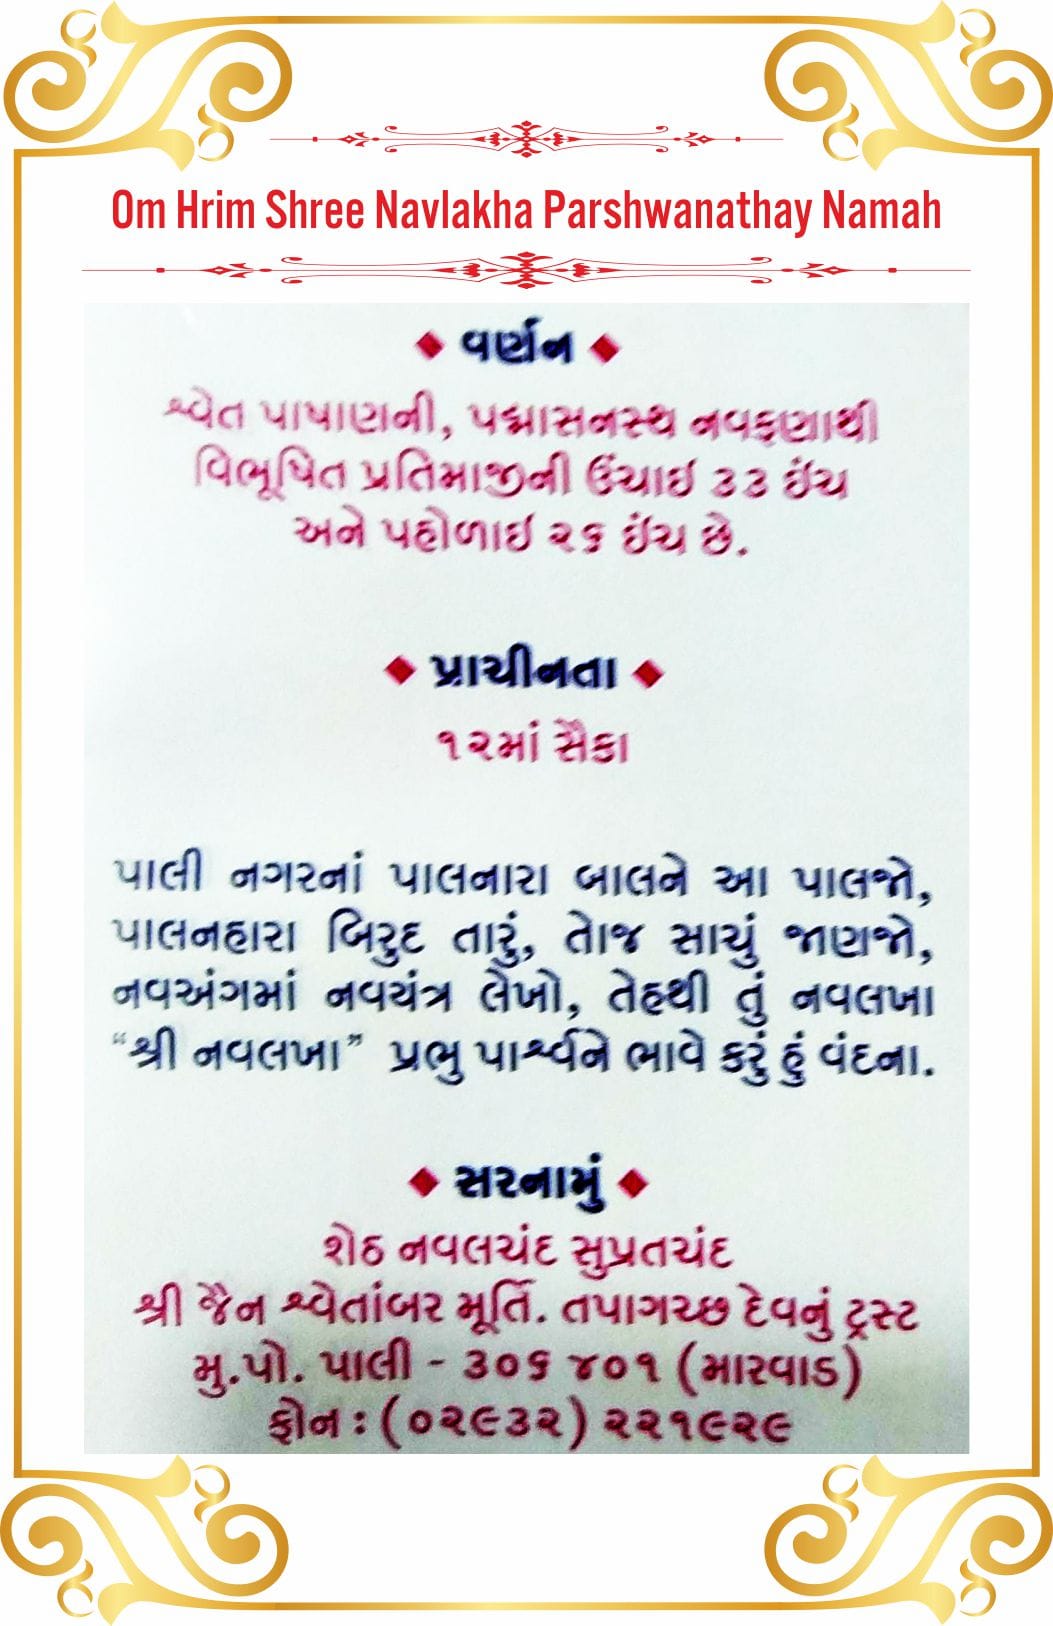 Om Hrim Shree Navlakha Parshwanathay Namah
વર્ણન
શ્વેત પાષાણની, પદ્માસનસ્થ નવફણાથી
વિભૂષિત પ્રતિમાજીની ઉંચાઇ ૩૩ ઇંચ
અને પહોળાઇ ૨૬ ઇંચ છે.
પ્રાચીનતા
૧૨માં સૈકા
પાલી નગરનાં પાલનારા બાલને આ પાલજો,
પાલનહારા બિરુદ તારું, તેાજ સાચું જાણજો,
નવઅંગમાં નવયંત્ર લેખો, તેહથી તું નવલખા
“શ્રી નવલખા” પ્રભુ પાર્શ્વને ભાવે કરું હું વંદના.
સરનામું
શેઠ નવલચંદ સુપ્રતચંદ
શ્રી જૈન શ્વેતાંબર મૂર્તિ. તપાગચ્છ દેવનું ટ્રસ્ટ
મુ.પો. પાલી - ૩૦૬ ૪૦૧ (મારવાડ)
ફોન : (૦૨૯૩૨) ૨૨૧૯૨૯